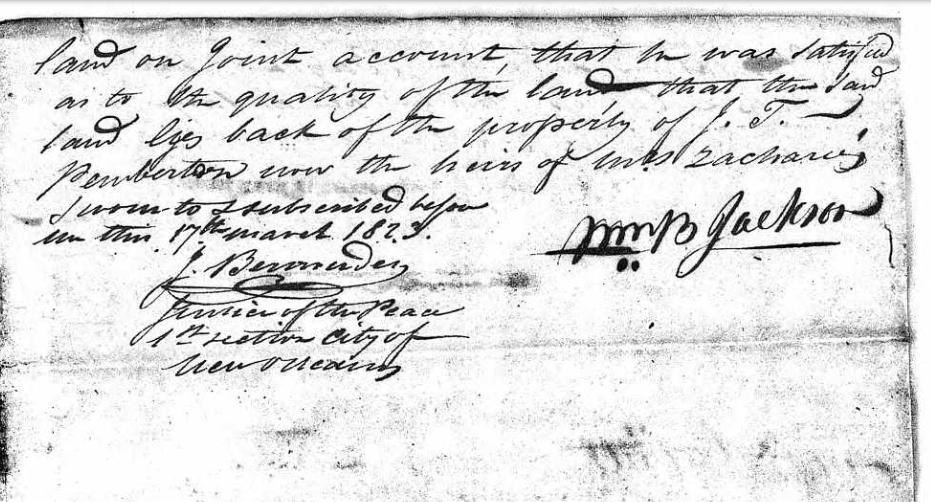 land on Joint account, that he was satisfied
as to the quality of the land that the said
land lyes back of the property of J. T.
Pemberton now the heirs of Mrs Zacharie,
Sworn to & subscribed before
me this 17th march 1823.
Wm B Jackson
J.
Justice of the Peace
1st section city of
New Orleans